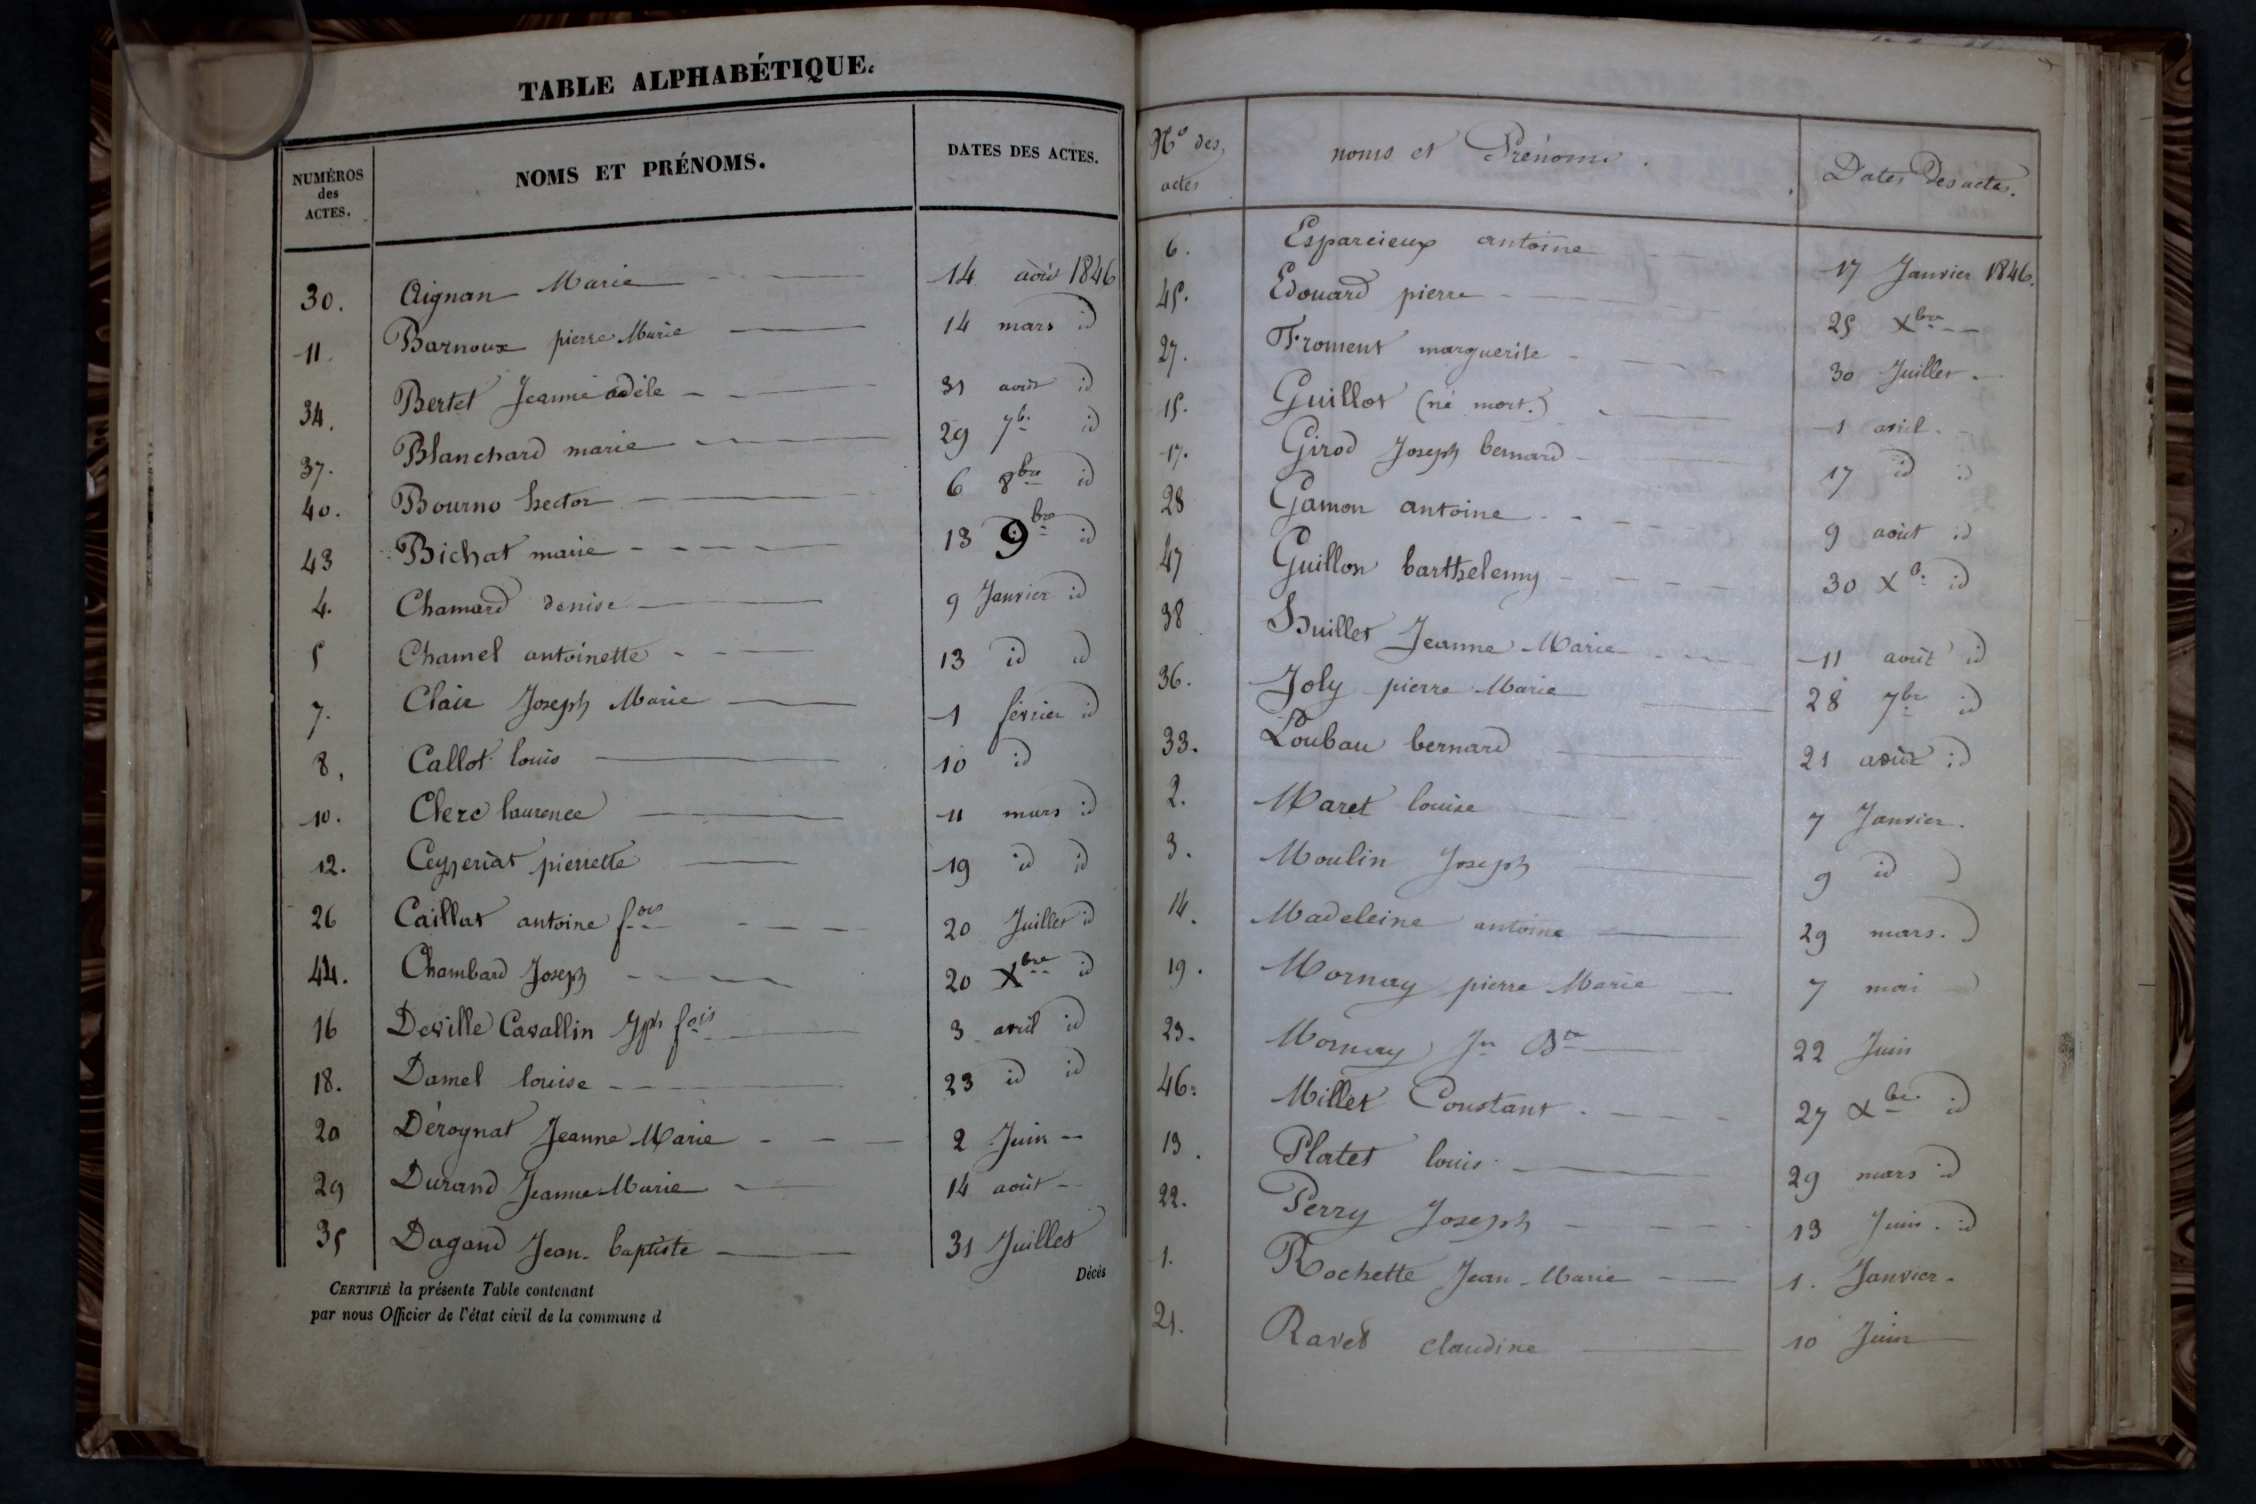 TABLE ALPHABÉTIQUE.
NUMÉROS des ACTES. NOMS ET PRÉNOMS. DATES DES ACTES.
30. Aignan Marie 14 août 1846
11 Barnoux pierre Marie 14 mars id
34. Bertet Jeanne adèle 31 août id
37. Blanchard marie 29 7bre id
40. Bourno hector 6 8bre id
43 Bichat marie 13 9bre id
4. Chamard denise 9 Janvier id
5 Chamel antoinette 13 id id
7. Clair Joseph Marie 1 février id
8. Callot louis 10 id
10. Clerc laurence 11 mars id
12. Ceyzeriat pierrette 19 id id
26 Caillat antoine fois 20 Juillet id
44. Chambard Joseph 20 Xbre id
16 Deville Cavallin Jph fois 3 avril id
18. Damel louise 23 id id
20 Dérognat Jeanne Marie 2 Juin
29 Durand Jeanne Marie 14 août
35 Dagand Jean-baptiste 31 Juillet
Décès
CERTIFIÉ la présente Table contenant
par nous Officier de l'état civil de la commune d
Nos des actes noms et Prénoms. Dates Des actes.
6. Esparcieux antoine 17 Janvier 1846.
45. Edouard pierre 25 Xbre
27. Froment marguerite 30 Juillet
15. Guillot (né mort.) 1 avril
17. Girod Joseph bernard 17 id id
28 Gamon antoine 9 août id
47 Guillon barthelemy 30 Xb. id
38 Huillet Jeanne Marie 11 août id
36. Joly pierre Marie 28 7bre id
33. Loubau bernard 21 août id
2. Maret louise 7 Janvier.
3. Moulin Joseph 9 id
14. Madeleine antoine 29 mars.
19. Mornay pierre Marie 7 mai
23. Mornay Jn Bte 22 Juin
46. Millet Constant 27 Xbre id
13. Platet louis 29 mars id
22. Perry Joseph 13 Juin. id
1. Rochette Jean-Marie 1. Janvier.
21. Ravet claudine 10 Juin